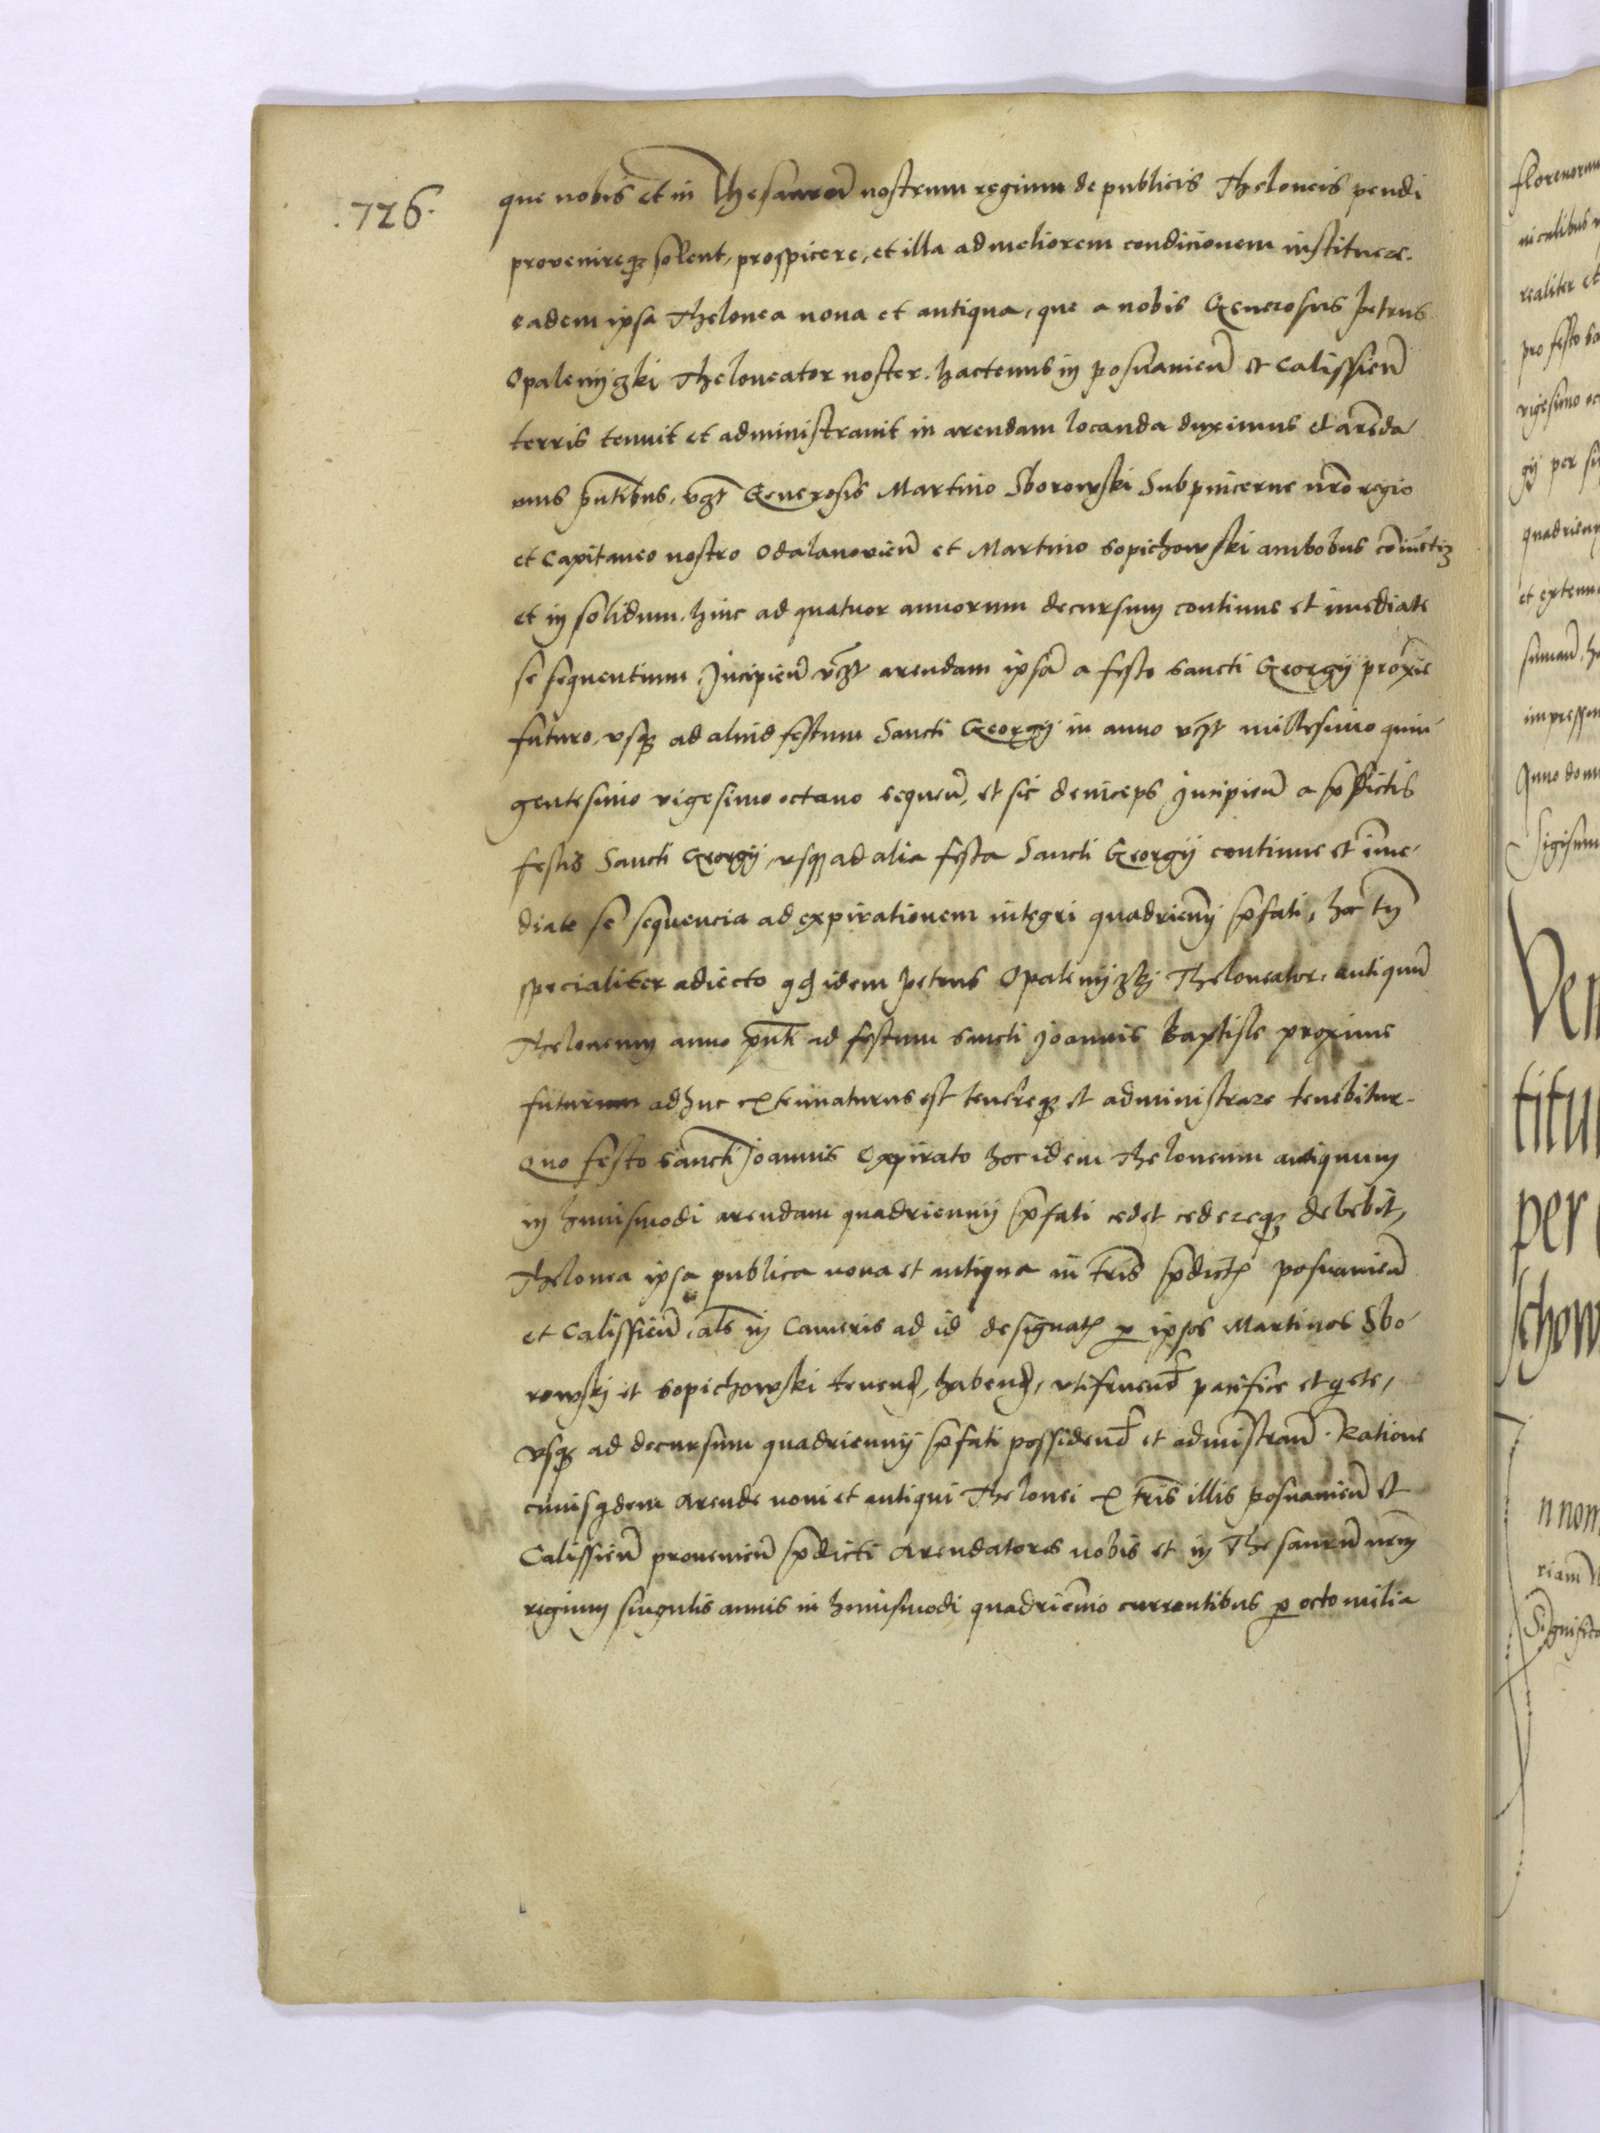 .726.
que nobis et in Thesauru̅ nostrum regium de publicis Theloneis pendi
provenireqȝ solent, prospicere, et illa ad meliorem condicionem instituere.
eadem ipsa Thelonea nova et antiqua, que a nobis Generosus Petrus
Opalenyczki Theloneator noster. hactenus in posnanien̅ et Calissien̅
terris tenuit et administravit in arendam locanda duximus et are̅da
mus pn̅tibus, vcȝt Generosis Martino Sborowski Subpincerne nr̅o regio
et Capitaneo nostro Odalanovien̅ et Martino Sopichowski ambobus co̅iu̅ctiȝ
et in solidum, hinc ad quatuor annorum decursum continue et imediate
se sequentium, Incipien̅ vcȝt arendam ipsa̅ a festo sancti Georgÿ proxi̅e
futuro, usqȝ ad aliud festum Sancti Georgÿ in anno vcȝt millesimo quin
gentesimo vigesimo octavo sequen̅, et sic deinceps Incipien̅ a p̅dictis
festis Sancti Georgÿ, usqȝ ad alia festa Sancti Georgÿ continue et i̅me
diate se sequencia ad expirationem integri quadrien̅ÿ p̅fati, hoc tn̅
specialiter adiecto qd idem Petrus Opalenyczki Theloneator, antiquu̅
Theloneum anno pn̅ti ad festum sancti Joannis Baptiste proxime
futurum adhuc extenuaturus est tenereqȝ et administrare tenebitur.
Quo festo sancti Joannis Expirato hoc idem Theloneum antiquum
in huiusmodi arendam quadriennÿ p̅fati cedet cedereqȝ debebit,
Thelonea ipsa publica nova et antiqua in tr̅is p̅dictꝭ posnanien̅
et Calissien̅, al̅s in Cameris ad id designatꝭ ꝑ ipsos Martinos Sbo
rowski et Sopichowski tenend̅, habend̅, utifruend̅ pacifice et q̅ete,
usqȝ ad decursum quadriennÿ p̅fati possidend̅ et administran̅. Ratione
cuiusqdem Arende novi et antiqui Thelonei ex tr̅is illis posnanien̅ et
Calissien̅ provenien̅ p̅dicti Arendatores nobis et in Thesauru̅ nr̅m
regium singulis annis in huiusmodi quadrien̅io currentibus ꝑ octo milia